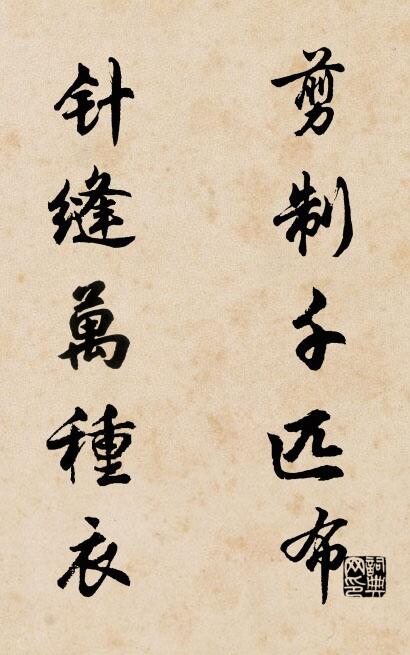 剪制千匹布
针缝萬種衣
詞典网印